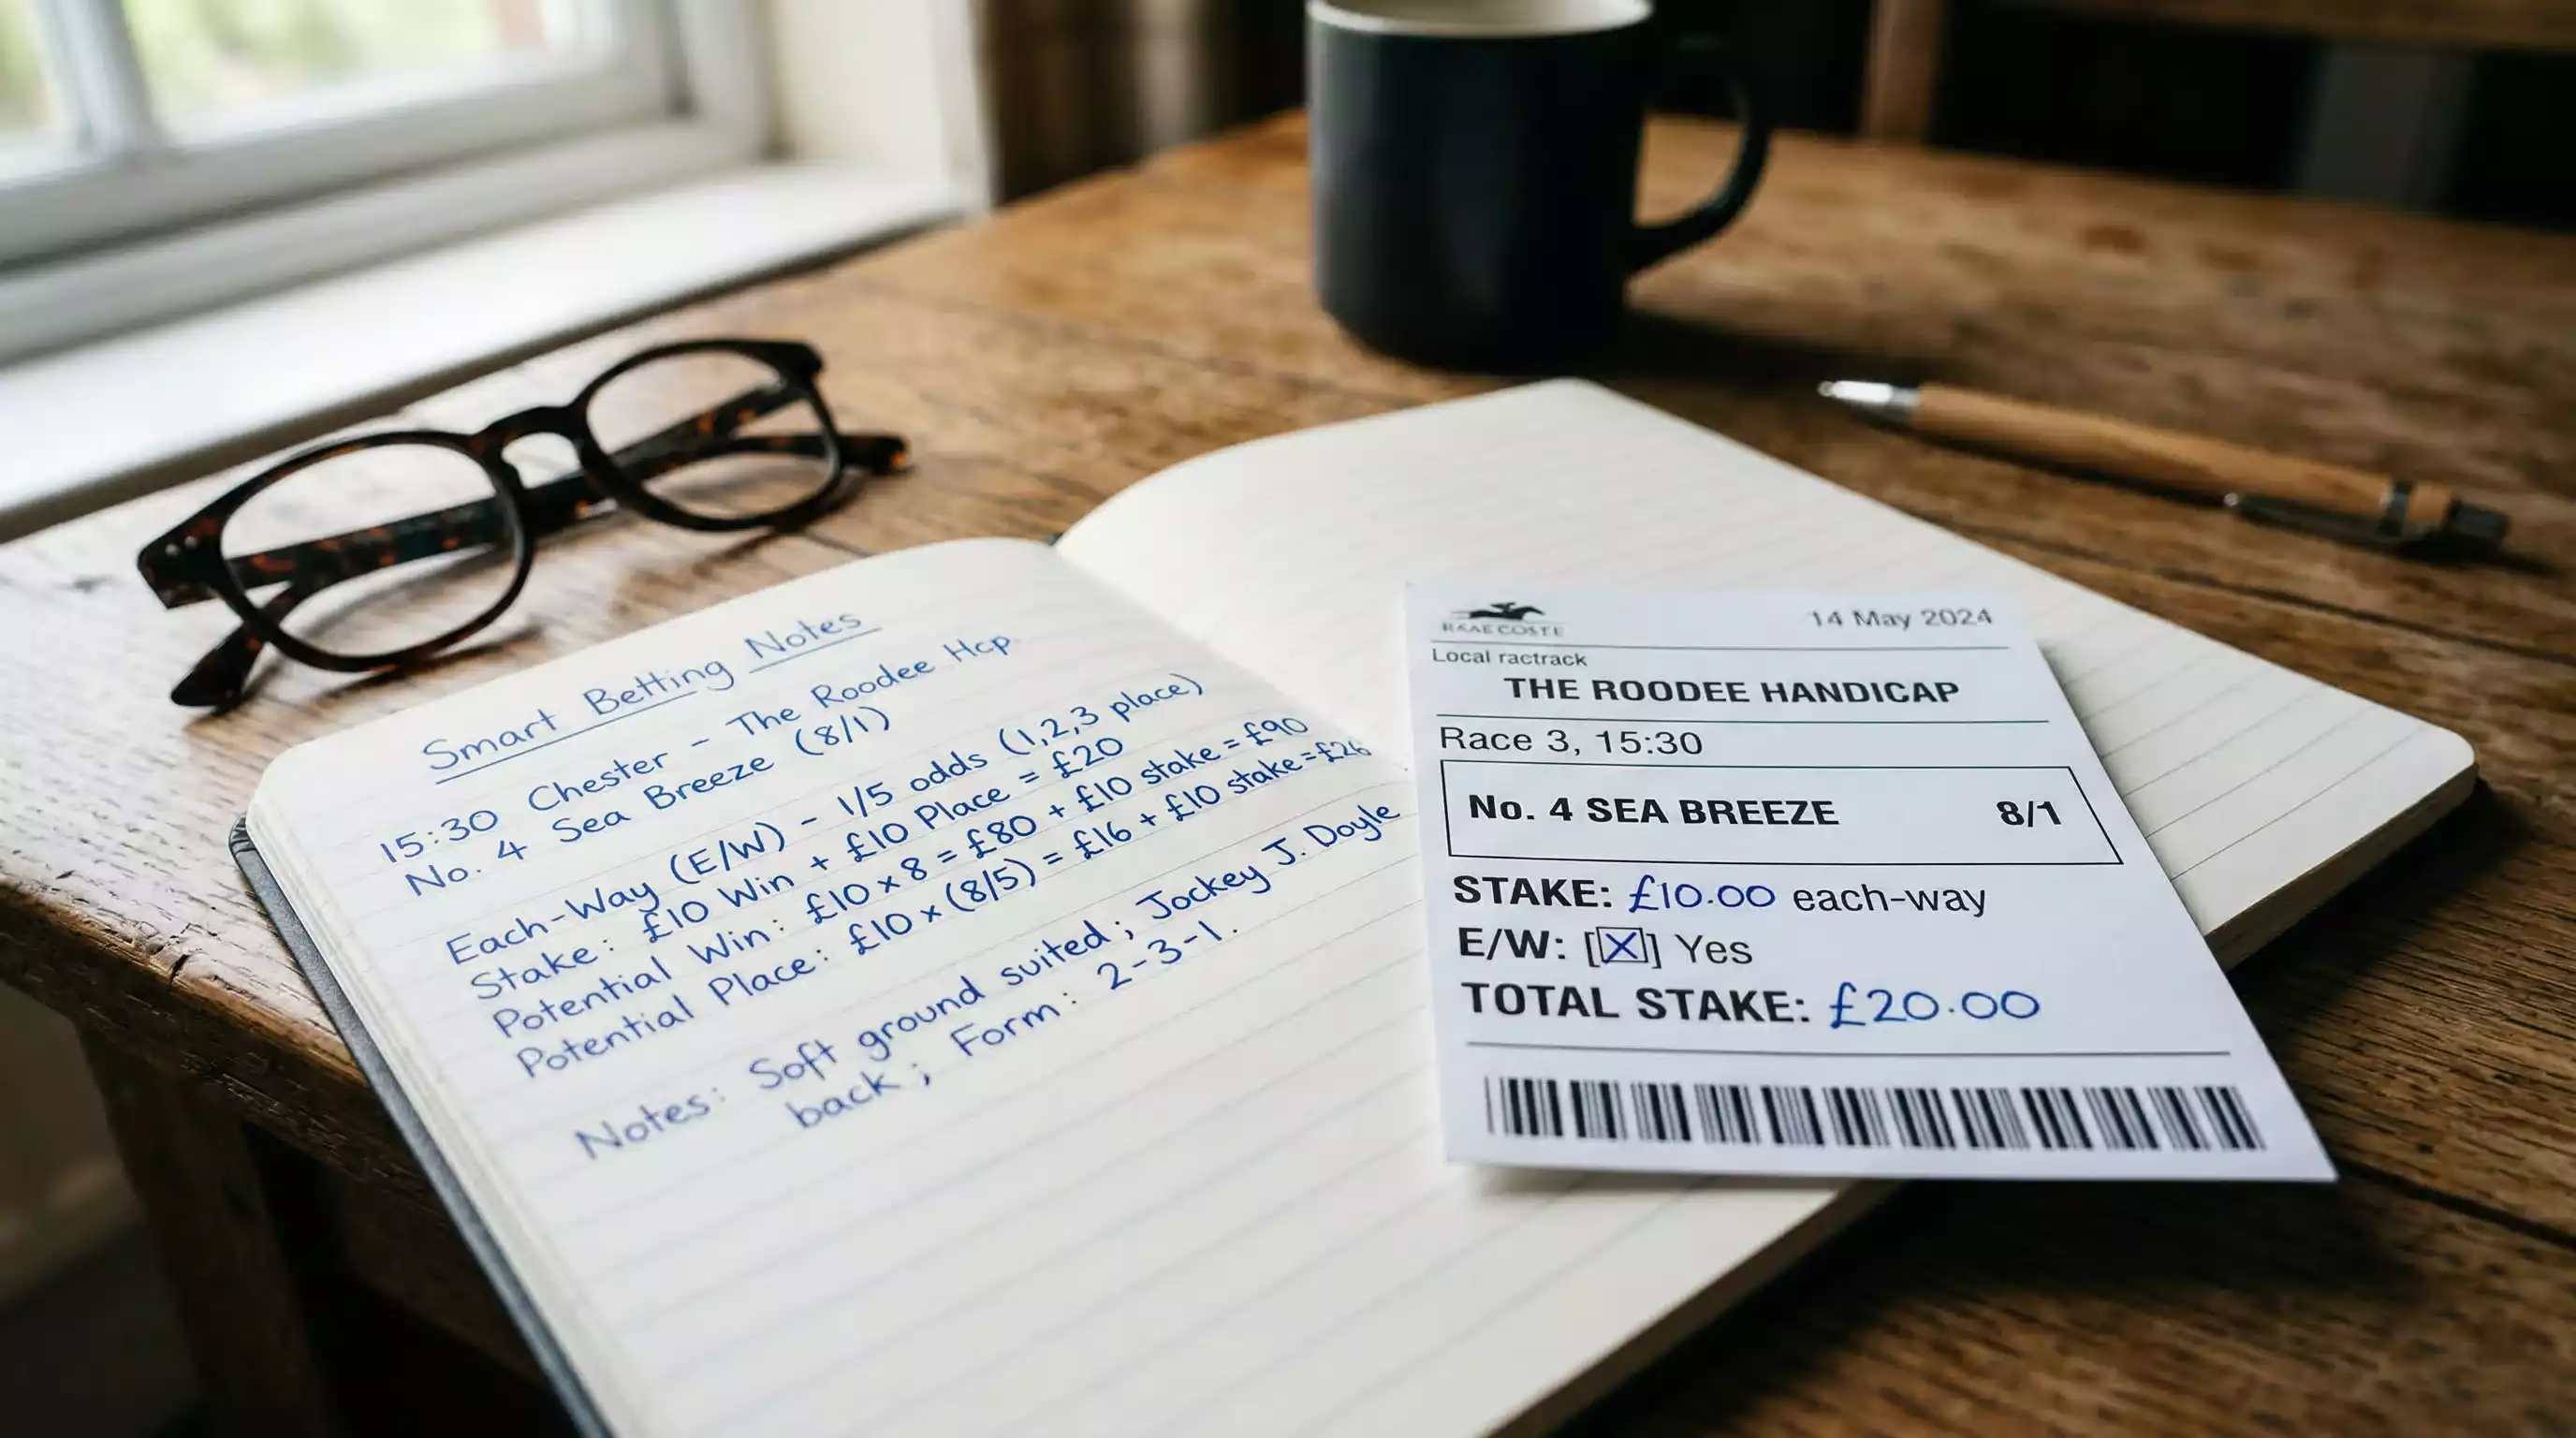 Smart Betting Notes
15:30 Chester - The Roodee Hcp.
No. 4 Sea Breeze (8/1)
Each-Way (E/W) - 1/5 odds (1,2,3 place)
Stake: £10 Win + £10 Place = £20
Potential Win: £10 x 8 = £80 + £10 stake = £90
Potential Place: £10 x (8/5) = £16 + £10 stake = £26
Notes: Soft ground suited; Jockey J. Doyle
back; Form: 2-3-1.
14 May 2024
Local ractrack
THE ROODEE HANDICAP
Race 3, 15:30
No. 4 SEA BREEZE 8/1
STAKE: £10.00 each-way
E/W: [X] Yes
TOTAL STAKE: £20.00